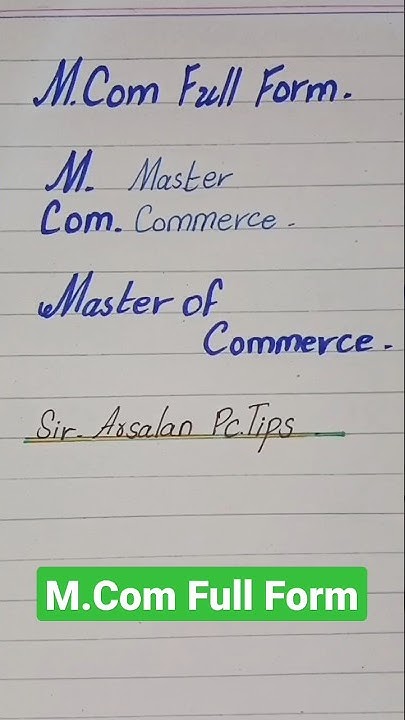 M.Com Full Form.
M. Master
Com. Commerce.
Master of
Commerce.
Sir. Arsalan Pc.Tips
M.Com Full Form